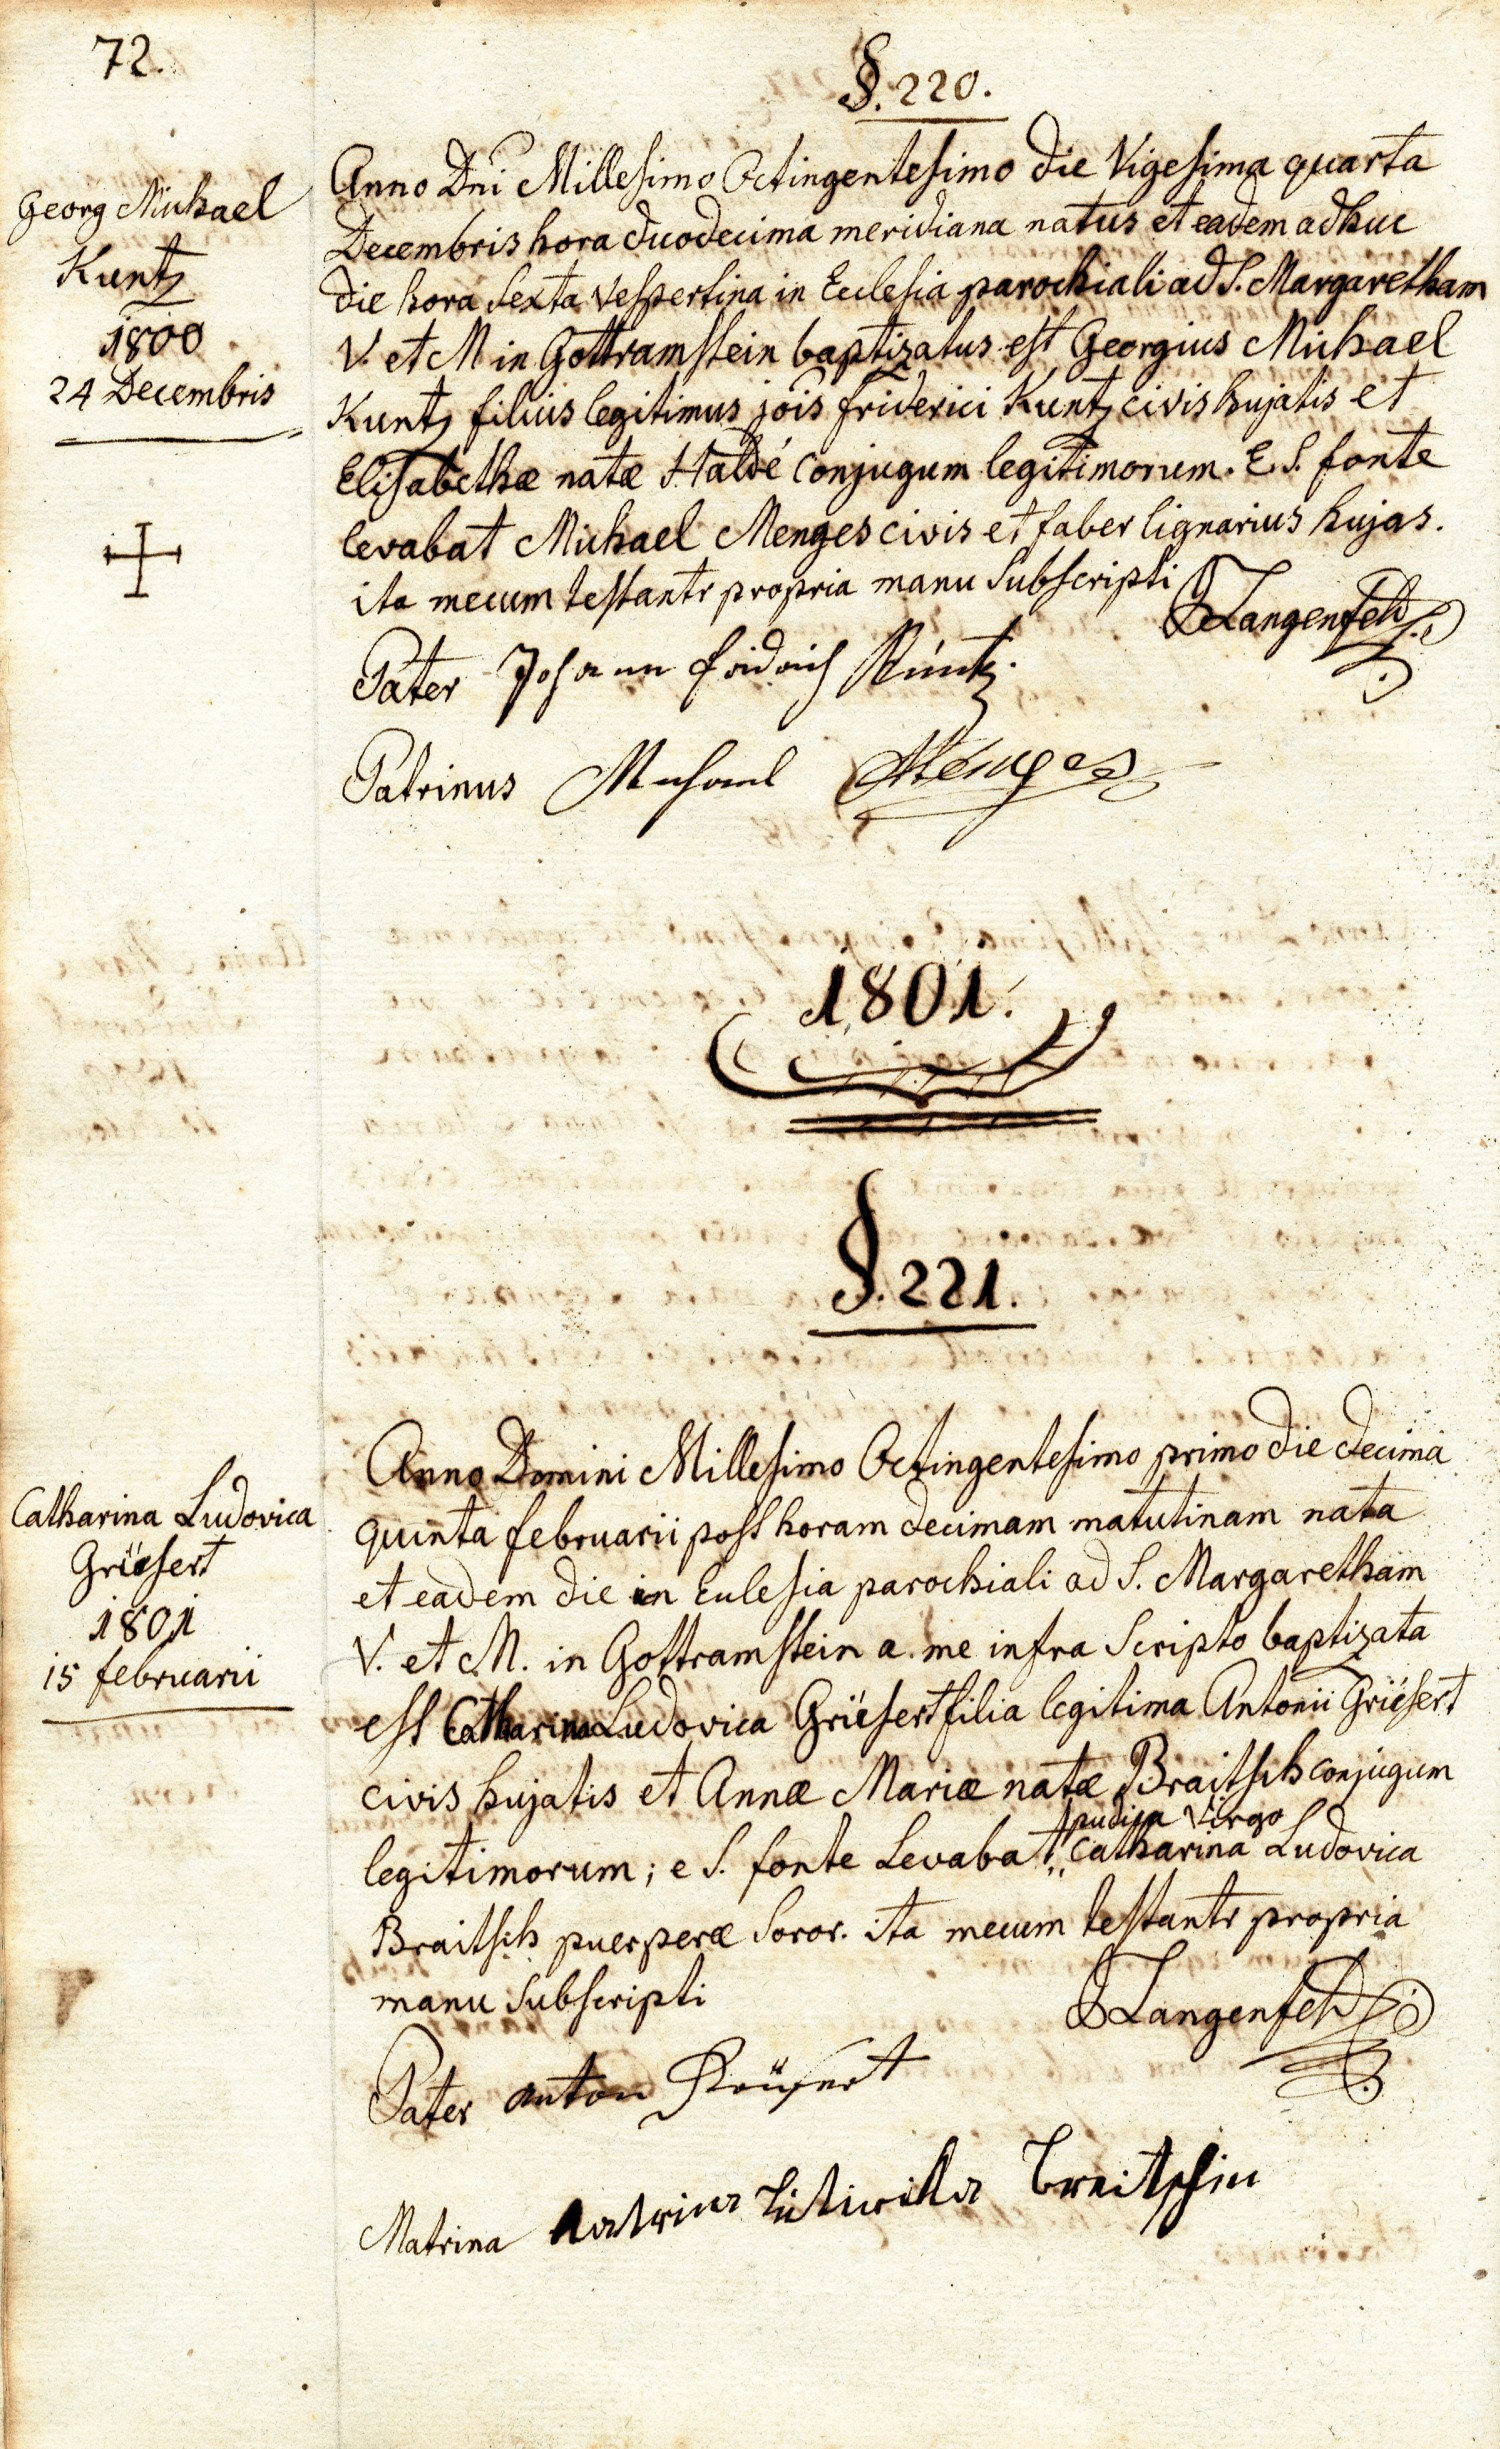 72.
§. 220.
Georg Michael
Kuntz
1800
24 Decembris
Anno Dni Millesimo Octingentesimo die Vigesima quarta
Decembris hora duodecima meridiana natus et eadem adhuc
die hora sexta vespertina in Ecclesia parochiali ad S. Margaretham
V. et M in Gottramstein baptizatus est Georgius Michael
Kuntz filius legitimus jois friderici Kuntz civis hujatis et
Elisabethæ natæ Haldé conjugum legitimorum. E. S. fonte
levabat Michael Menges civis et faber lignarius hujas.
ita mecum testantr propria manu subscripti
Langenfeld
Pater Johann fridrich Kuntz.
Patrinus Michael Menges
1801.
§. 221.
Catharina Ludovica
Griësert
1801
15 februarii
Anno Domini Millesimo Octingentesimo primo die decima
quinta februarii post horam decimam matutinam nata
et eadem die in Eclesia parochiali ad S. Margaretham
V. et M. in Gottramstein a me infra scripto baptizata
est Catharina Ludovica Griësert filia legitima Antonii Griësert
civis hujatis et Annæ Mariæ natæ Braitsch conjugum
pudica Virgo
legitimorum; e S. fonte Levabat Catharina Ludovica
Braitsch puerperæ soror. ita mecum testantr propria
manu subscripti
Langenfeld
Pater anton
Matrina Katrina Breitschin